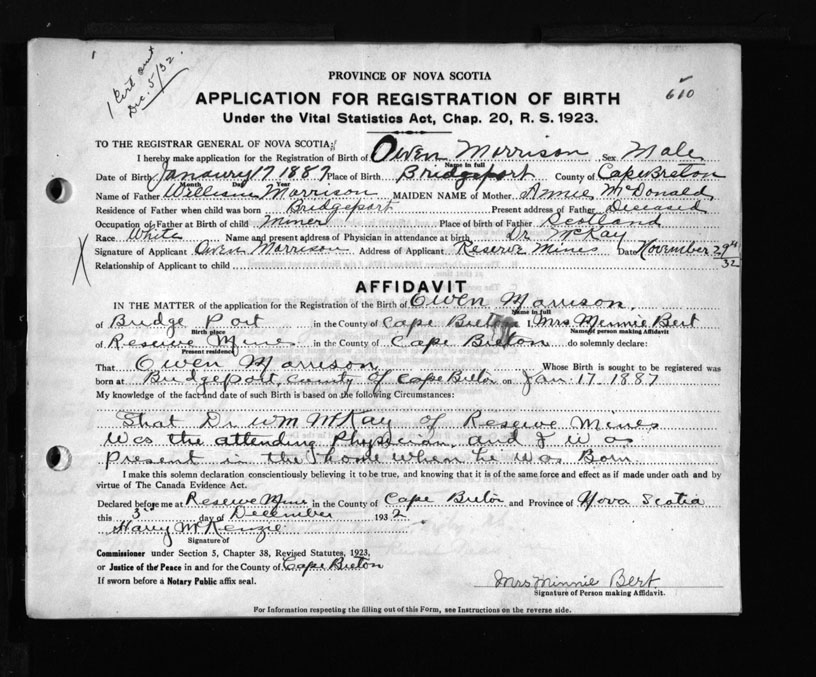 1 Cert out
Dec. 5/32.
610
PROVINCE OF NOVA SCOTIA
APPLICATION FOR REGISTRATION OF BIRTH
Under the Vital Statistics Act, Chap. 20, R. S. 1923.
TO THE REGISTRAR GENERAL OF NOVA SCOTIA;
I hereby make application for the Registration of Birth of Owen Morrison Sex Male
Name in full
Date of Birth Janaury 17 1887 Place of Birth Bridgeport County of Cape Breton
Month Day Year
Name of Father William Morrison MAIDEN NAME of Mother Annie McDonald
Residence of Father when child was born Bridgeport Present address of Father Diseased
Occupation of Father at Birth of child Miner Place of birth of Father Scotland
Race White Name and present address of Physician in attendance at birth Dr McKay
X Signature of Applicant Owen Morrison Address of Applicant Reserve Mines Date November 29th 32
Relationship of Applicant to child
AFFIDAVIT
IN THE MATTER of the application for the Registration of the Birth of Owen Morrison
Name in full
of Bridge Port in the County of Cape Breton I, Mrs Minnie Bert
Birth place Name of person making Affidavit
of Reserve Mines in the County of Cape Breton do solemnly declare:
Present residence
That Owen Morrison Whose Birth is sought to be registered was
born at Bridgeport, County of Cape Breton on Jan. 17 1887
My knowledge of the fact and date of such Birth is based on the following Circumstances:
That Dr Wm McKay of Reserve Mines
Was the attending Physician, and I was
present in the home when he was Born
I make this solemn declaration conscientiously believing it to be true, and knowing that it is of the same force and effect as if made under oath and by
virtue of The Canada Evidence Act.
Declared before me at Reserve Mines in the County of Cape Breton and Province of Nova Scotia
this 3rd day of December 1932.
Harry McKenzie
Signature of
Commissioner under Section 5, Chapter 38, Revised Statutes, 1923,
or Justice of the Peace in and for the County of Cape Breton
If sworn before a Notary Public affix seal.
Mrs Minnie Bert
Signature of Person making Affidavit.
For Information respecting the filling out of this Form, see Instructions on the reverse side.